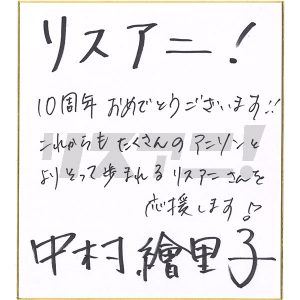 リスアニ！
10周年 おめでとうございます!!
これからも たくさんの アニソンと
よりそって歩まれる リスアニさんを
応援します♪
中村繪里子
リスアニ！